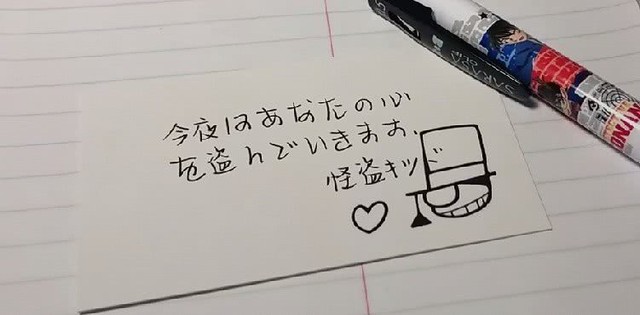 今夜はあなたの心
を盗んでいきます、
怪盗キッド